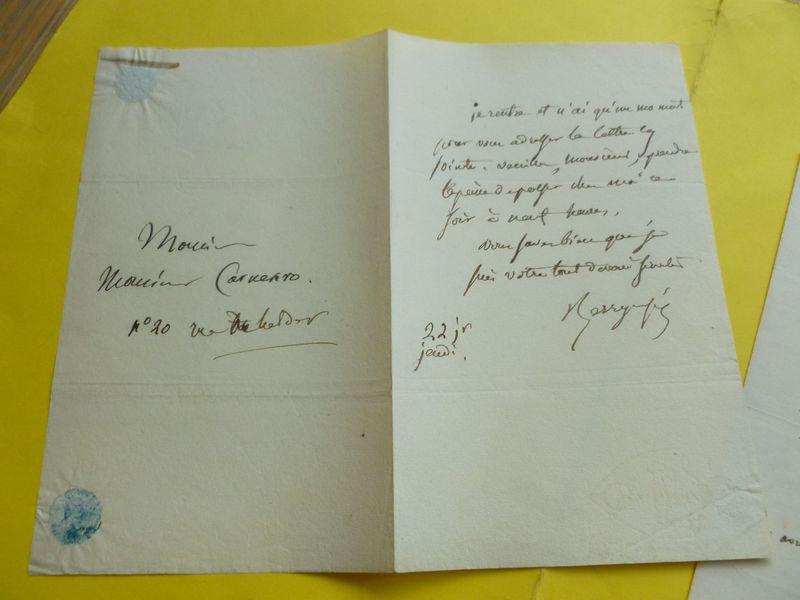 Monsieur
Monsieur Carnerro.
n° 20 rue du helder
je rentre et n'ai qu'un moment
pour vous adresser la lettre cy
jointe. veuillez, monsieur, prendre
la peine de passer chez moi ce
soir à neuf heures.
vous savez bien que je
suis votre tout dévoué serviteur
Berryer fils
22 jr
jeudi.